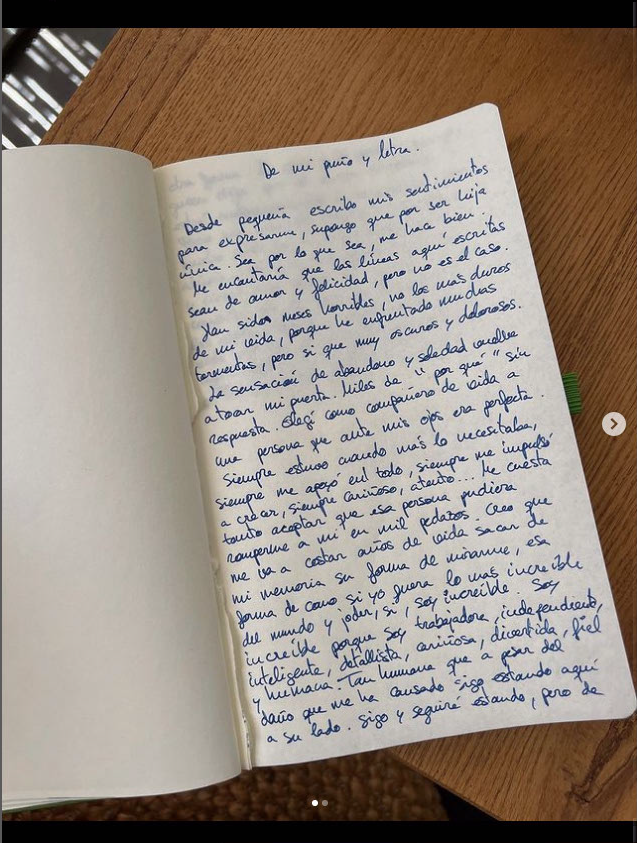 De mi puño y letra.
Desde pequeña escribo mis sentimientos
para expresarme, supongo que por ser hija
única. Sea por lo que sea, me hace bien.
Me encantaría que las líneas aquí escritas
sean de amor y felicidad, pero no es el caso.
Han sidos meses horribles, no los mas duros
de mi vida, porque he enfrentado muchas
tormentas, pero si que muy oscuros y dolorosos.
La sensación de abandono y soledad vuelve
a tocar mi puerta. Miles de "por qué" sin
respuesta. Elegí como compañero de vida a
una persona que ante mis ojos era perfecta.
Siempre estuvo cuando más lo necesitaba,
siempre me apoyó en todo, siempre me impulsó
a crecer, siempre cariñoso, atento... Me cuesta
tanto aceptar que esa persona pudiera
romperme a mi en mil pedazos. Creo que
me va a costar años de vida sacar de
mi memoria su forma de mirarme, esa
forma de como si yo fuera lo mas increíble
del mundo y joder, si, soy increíble. Soy
increíble porque soy trabajadora, independiente,
inteligente, detallista, cariñosa, divertida, fiel
y humana. Tan humana que a pesar del
daño que me ha causado sigo estando aquí
a su lado. Sigo y seguiré estando, pero de